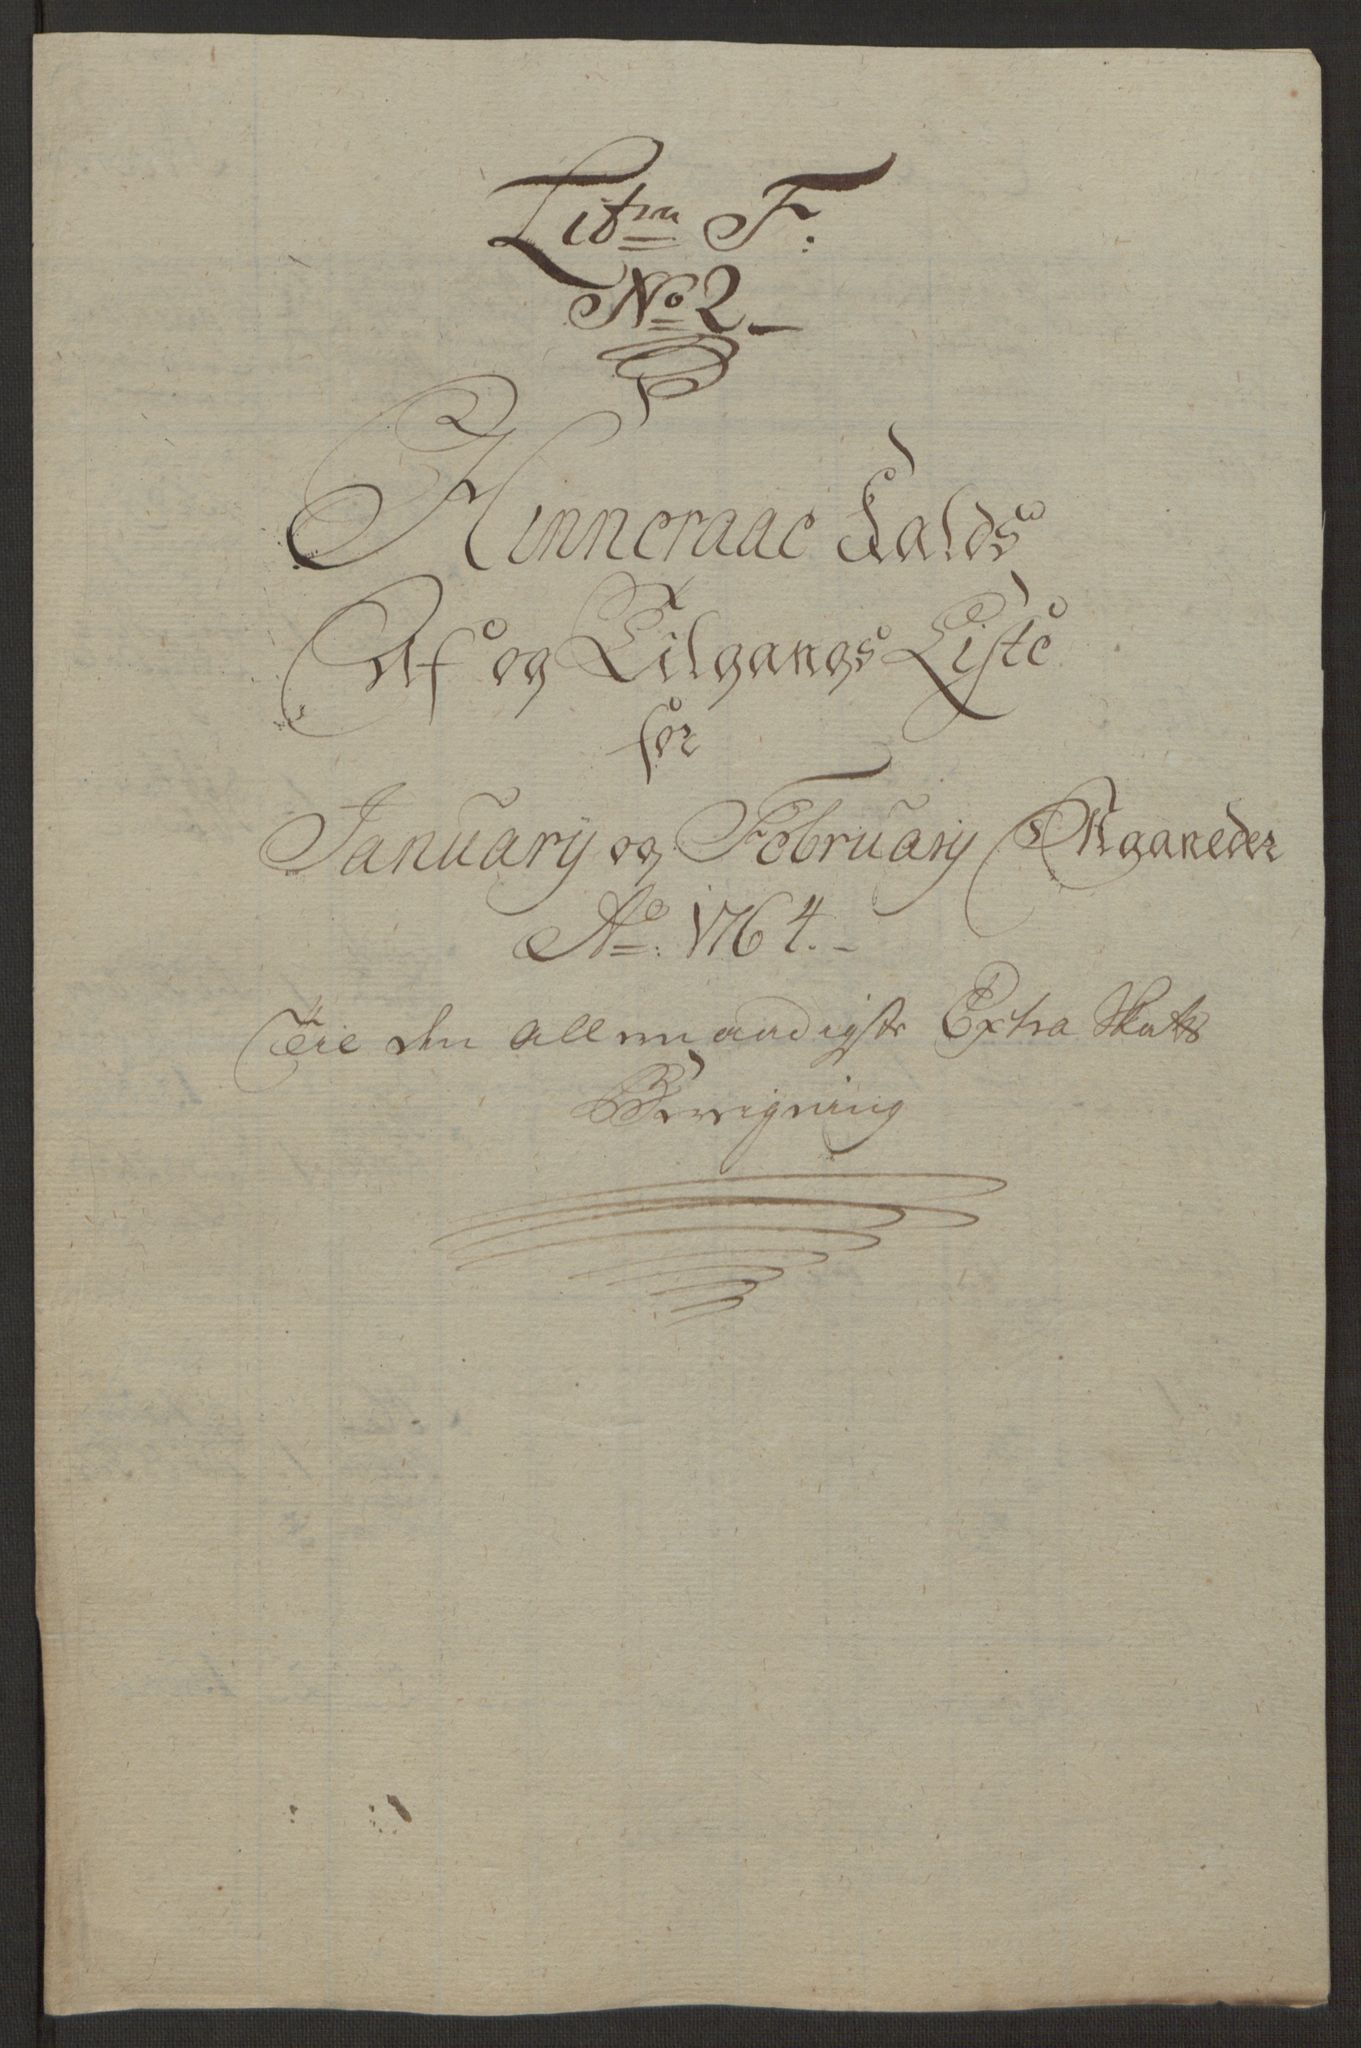 Litra F.
No 2
Hinneraae Kalds
Af og Tilgangs Liste
for
January og February Maaneder
Ao. 1764.
Til den allernaadigste Extra Skatts
Beregning